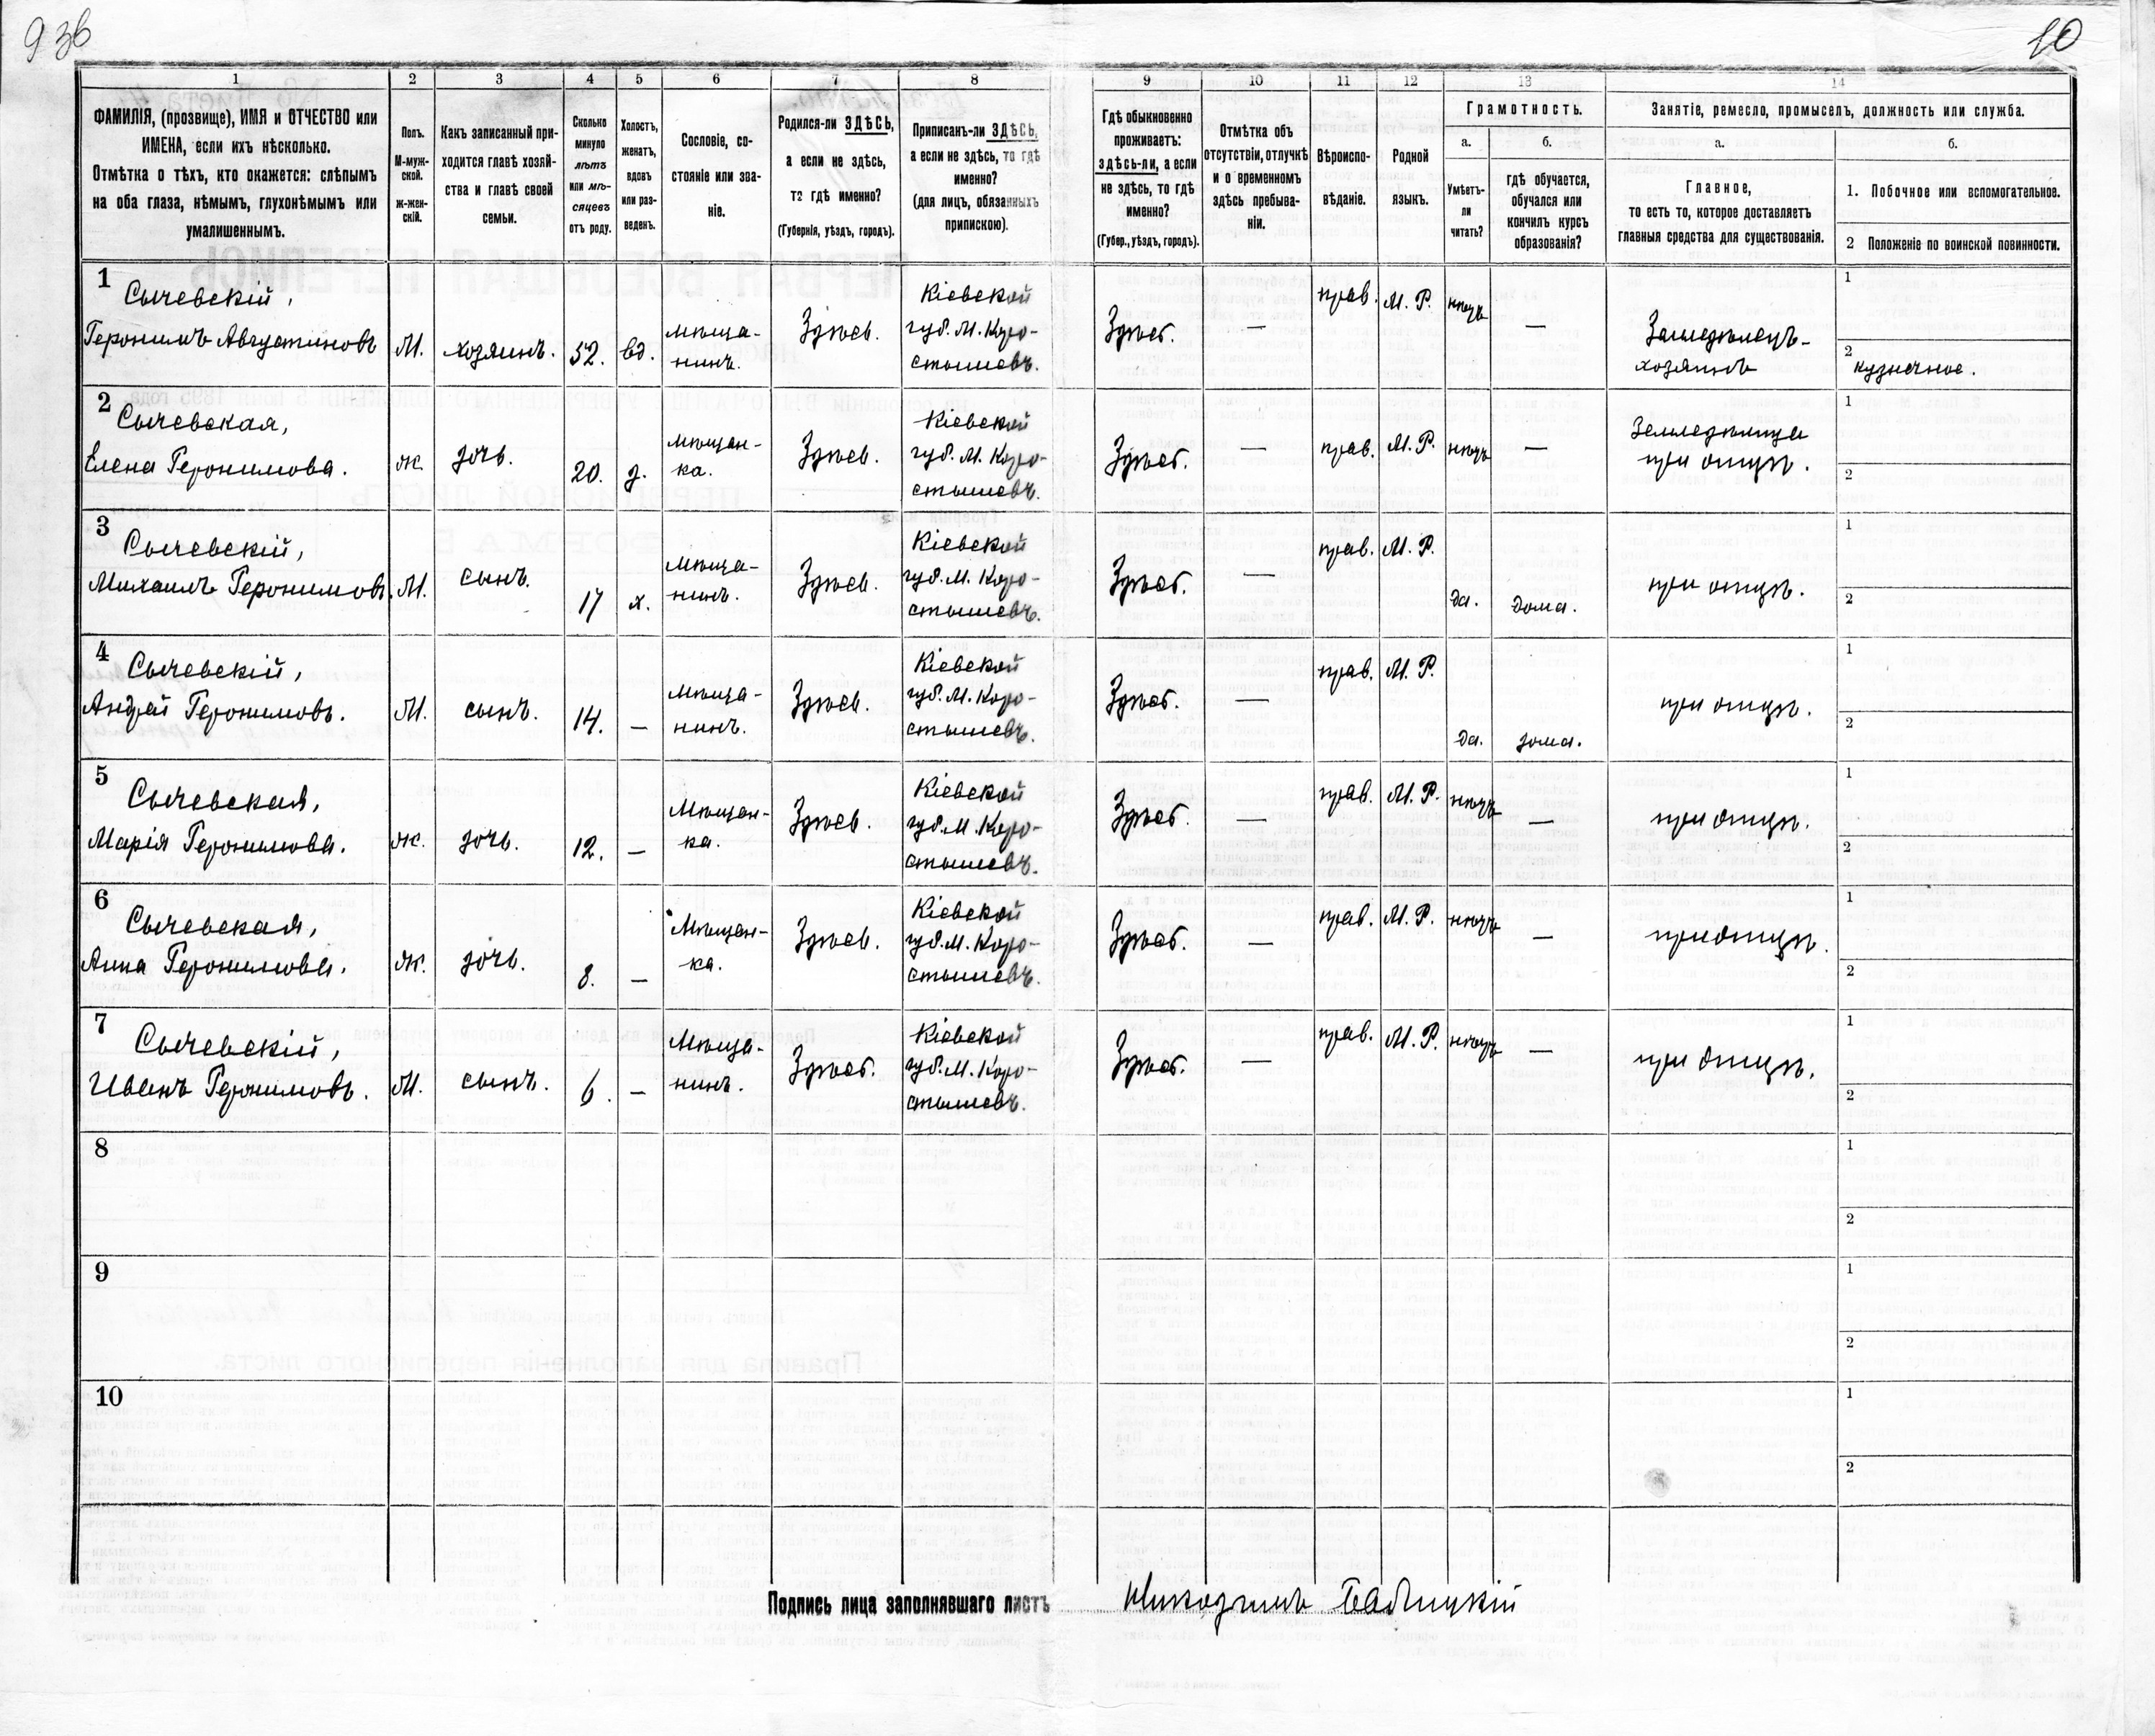 936
10
1
2
3
4
5
6
7
8
9
10
11
12
13
14
ФАМИЛІЯ, (прозвище), ИМЯ и ОТЧЕСТВО или
ИМЕНА, если ихъ нѣсколько.
Отмѣтка о тѣхъ, кто окажется: слѣпымъ
на оба глаза, нѣмымъ, глухонѣмымъ или
умалишеннымъ.
Полъ.
М-муж-
ской.
ж-жен-
скій.
Какъ записанный при-
ходится главѣ хозяй-
ства и главѣ своей
семьи.
Сколько
минуло
лѣтъ
или мѣ-
сяцевъ
отъ роду.
Холостъ,
женатъ,
вдовъ
или раз-
веденъ.
Сословіе, со-
стояніе или зва-
ніе.
Родился-ли ЗДѢСЬ,
а если не здѣсь,
то гдѣ именно?
(Губернія, уѣздъ, городъ).
Приписанъ-ли ЗДѢСЬ,
а если не здѣсь, то гдѣ
именно?
(для лицъ, обязанныхъ
припискою).
Гдѣ обыкновенно
проживаетъ:
здѣсь-ли, а если
не здѣсь, то гдѣ
именно?
(Губер., уѣздъ, городъ).
Отмѣтка объ
отсутствіи, отлучкѣ
и о временномъ
здѣсь пребыва-
ніи.
Вѣроиспо-
вѣданіе.
Родной
языкъ.
Грамотность.
а.
Умѣетъ-
ли
читать?
б.
гдѣ обучается,
обучался или
кончилъ курсъ
образованія?
Занятіе, ремесло, промыселъ, должность или служба.
а.
Главное,
то есть то, которое доставляетъ
главныя средства для существованія.
б.
1. Побочное или вспомогательное.
2 Положеніе по воинской повинности.
1
Сычевскій,
Геронимъ Августиновъ
М.
хозяинъ.
52.
вд.
мѣща-
нинъ.
Здѣсь.
Кіевской
губ. М. Коро-
стышевъ.
Здѣсь.
—
прав.
М. Р.
нѣтъ
—
Земледѣлецъ-
хозяинъ
1
2
кузнечное.
2
Сычевская,
Елена Геронимова.
ж.
дочь.
20.
д.
мѣщан-
ка.
Здѣсь.
Кіевской
губ. М. Коро-
стышевъ.
Здѣсь.
—
прав.
М. Р.
нѣтъ
—
Земледѣлица
при отцѣ.
1
2
3
Сычевскій,
Михаилъ Геронимовъ.
М.
сынъ.
17
х.
мѣща-
нинъ.
Здѣсь.
Кіевской
губ. М. Коро-
стышевъ.
Здѣсь.
—
прав.
М. Р.
да.
дома.
при отцѣ.
1
2
4
Сычевскій,
Андрей Геронимовъ.
М.
сынъ.
14.
—
мѣща-
нинъ.
Здѣсь.
Кіевской
губ. М. Коро-
стышевъ.
Здѣсь.
—
прав.
М. Р.
да.
дома.
при отцѣ.
1
2
5
Сычевская,
Марія Геронимова.
ж.
дочь.
12.
—
мѣщан-
ка.
Здѣсь.
Кіевской
губ. М. Коро-
стышевъ.
Здѣсь.
—
прав.
М. Р.
нѣтъ
—
при отцѣ.
1
2
6
Сычевская,
Анна Геронимова.
ж.
дочь.
8.
—
Мѣщан-
ка.
Здѣсь.
Кіевской
губ. М. Коро-
стышевъ.
Здѣсь.
—
прав.
М. Р.
нѣтъ
—
при отцѣ.
1
2
7
Сычевскій,
Иванъ Геронимовъ.
М.
сынъ.
6.
—
мѣща-
нинъ.
Здѣсь.
Кіевской
губ. М. Коро-
стышевъ.
Здѣсь.
—
прав.
М. Р.
нѣтъ
—
при отцѣ.
1
2
8
1
2
9
1
2
10
1
2
Подпись лица заполнявшаго листъ
Никодимъ Бабицкій